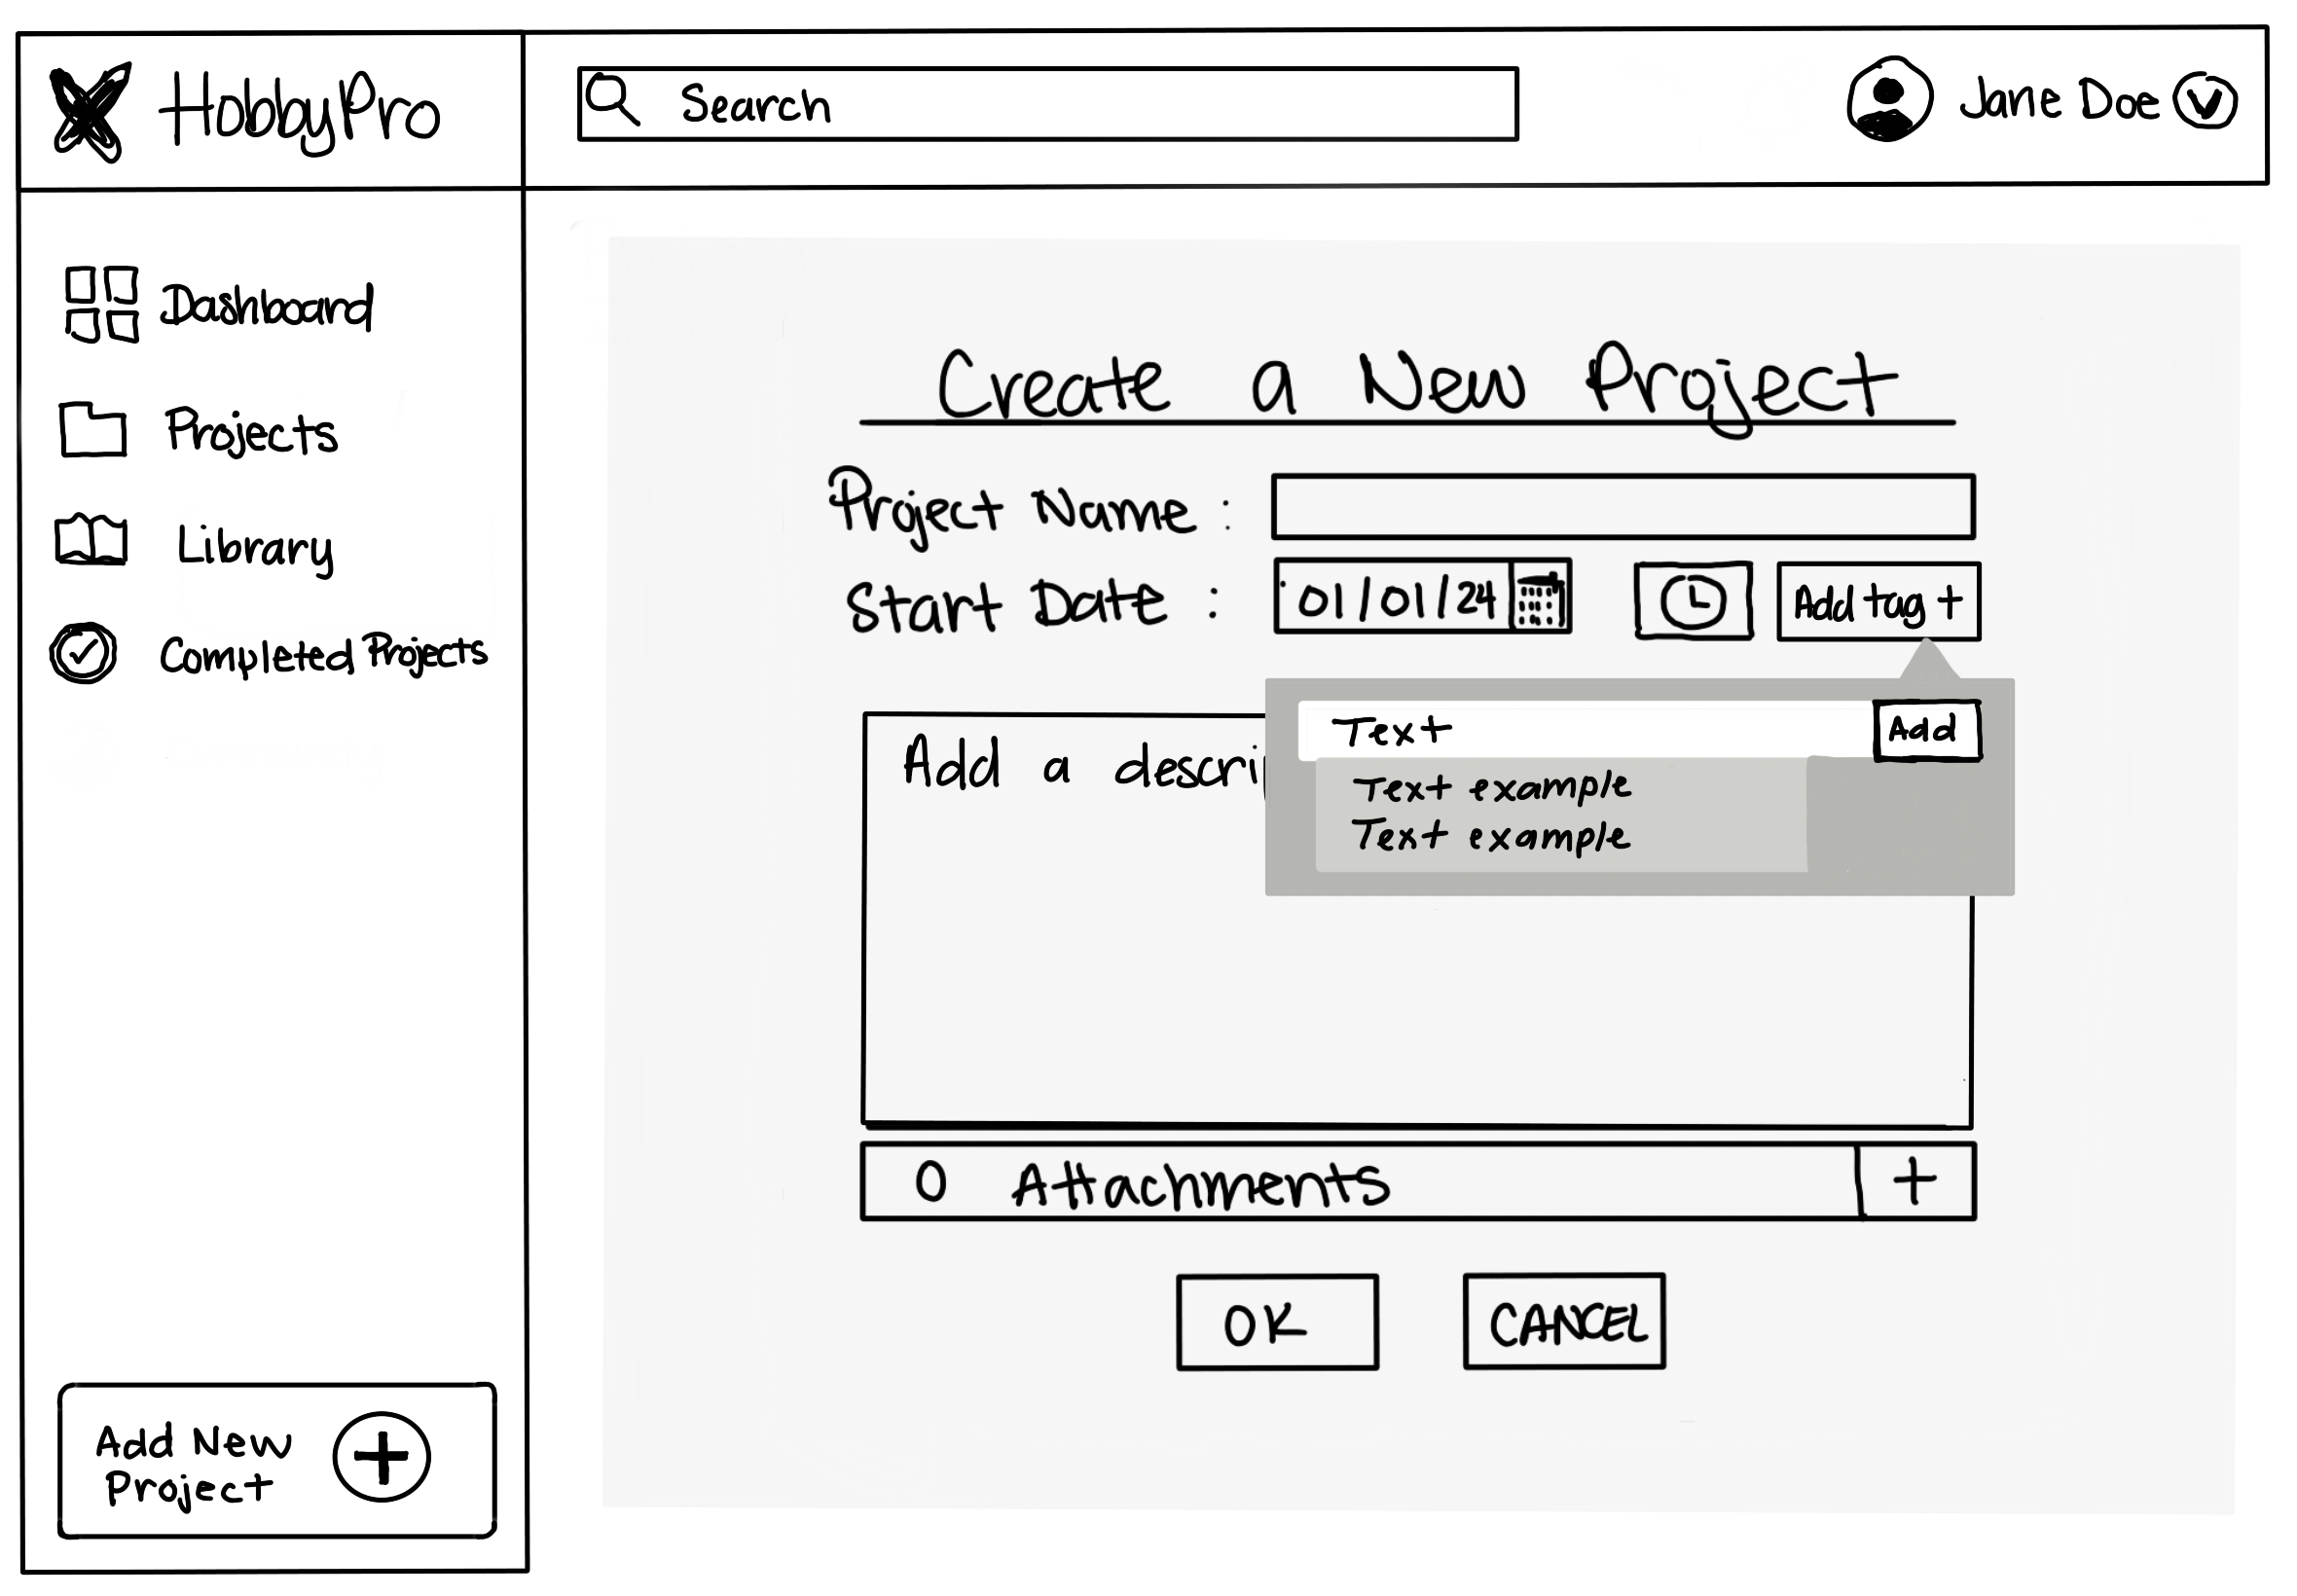 HobbyPro
Search
Jane Doe
Dashboard
Projects
Library
Completed Projects
Add New
Project
Create a New Project
Project Name :
Start Date : 01/01/24
Add tag +
Text
Add
Text example
Text example
Add a descri
0 Attachments +
OK
CANCEL